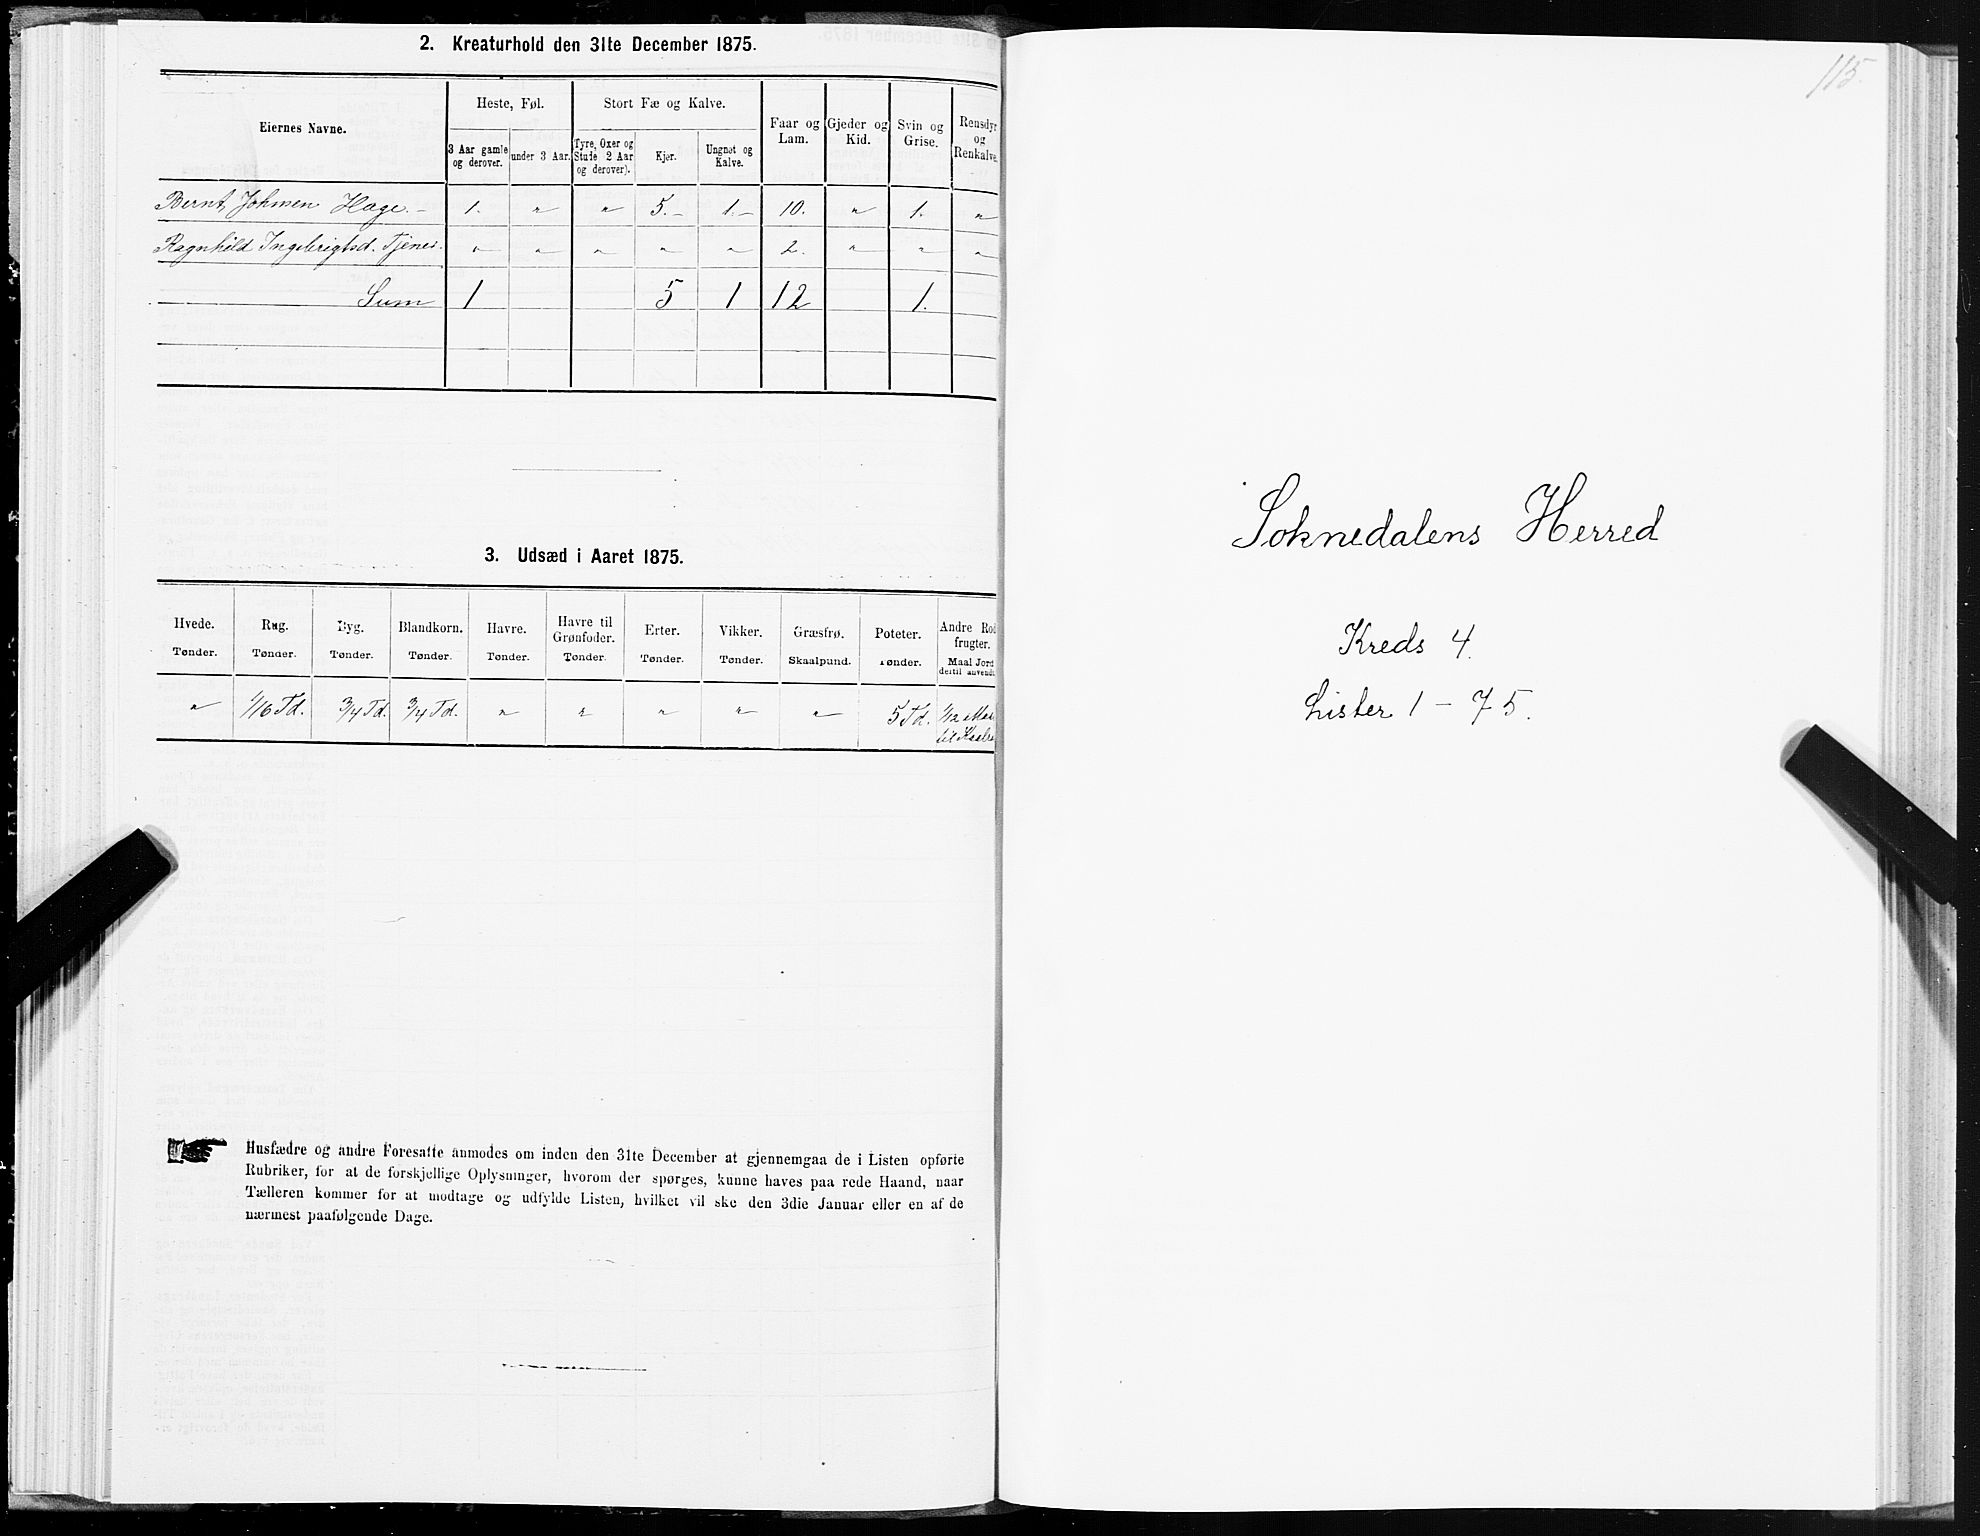 2. Kreaturhold den 31te December 1875.
Eiernes Navne.
Heste, Føl.
Stort Fæ og Kalve.
Faar og Lam.
Gjeder og Kid.
Svin og Grise.
Rensdyr og Renkalve.
3 Aar gamle og derover.
under 3 Aar.
Tyre, Oxer og Stude 2 Aar og derover).
Kjør.
Ungnøt og Kalve.
Bernt Johnsen Hage. – 1. " " 5. – 1. – 10. " 1. "
Ragnhild Ingebrigtsd. Tjenes. " " " " " 2. " " "
Sum 1 5 1 12 1.
3. Udsæd i Aaret 1875.
Hvede. Rug. Byg. Blandkorn. Havre. Havre til Grønfoder. Erter. Vikker. Græsfrø. Poteter. Andre Rodfrugter.
Tønder. Tønder. Tønder. Tønder. Tønder. Tønder. Tønder. Tønder. Skaalpund. Tønder. Maal Jord dertil anvendt
" 1/16 Td. 3/4 Td. 3/4 Td. " " " " " 5 Td. 1/12
til
Husfædre og andre Foresatte anmodes om inden den 31te December at gjennemgaa de i Listen opførte
Rubriker, for at de forskjellige Oplysninger, hvorom der spørges, kunne haves paa rede Haand, naar
Tælleren kommer for at modtage og udfylde Listen, hvilket vil ske den 3die Januar eller en af de
nærmest paafølgende Dage.
115.
Soknedalens Herred
Kreds 4.
Lister 1 – 75.